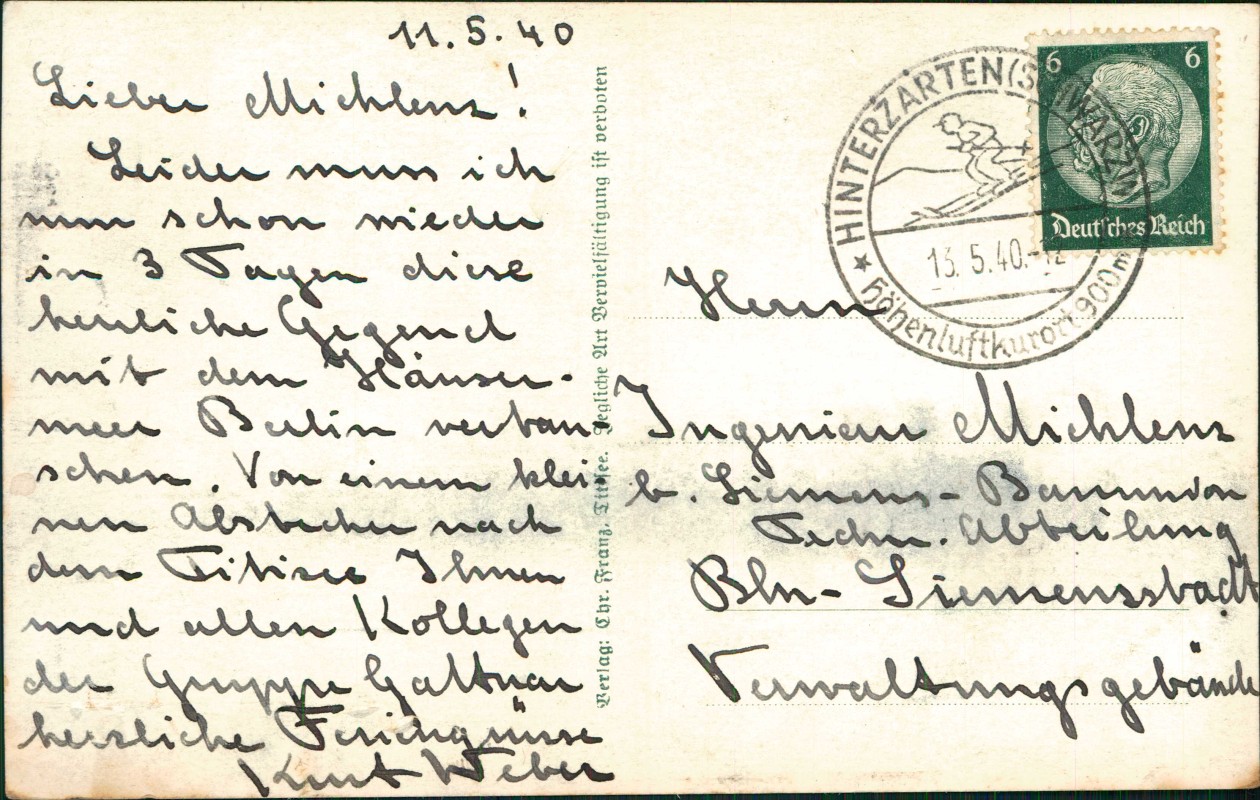 11.5.40
Lieber Michlenz!
Leider muss ich
nun schon wieder
in 3 Tagen diese
herrliche Gegend
mit dem Häuser-
meer Berlin vertau-
schen. Von einem klei-
nen Abstecher nach
dem Titisee Ihnen
und allen Kollegen
der Gruppe Gattnar
herzliche Feriengrüsse
Kurt Weber
Verlag: Chr. Franz. Titisee. Jegliche Art Vervielfältigung ist verboten
6 6
Deutsches Reich
HINTERZARTEN (SCHWARZW
13.5.40.-12
★ Höhenluftkurort 900 m
Herrn
Ingenieur Michlenz
b. Siemens-Bauunion
Techn. Abteilung
Bln-Siemensstadt
Verwaltungsgebäude